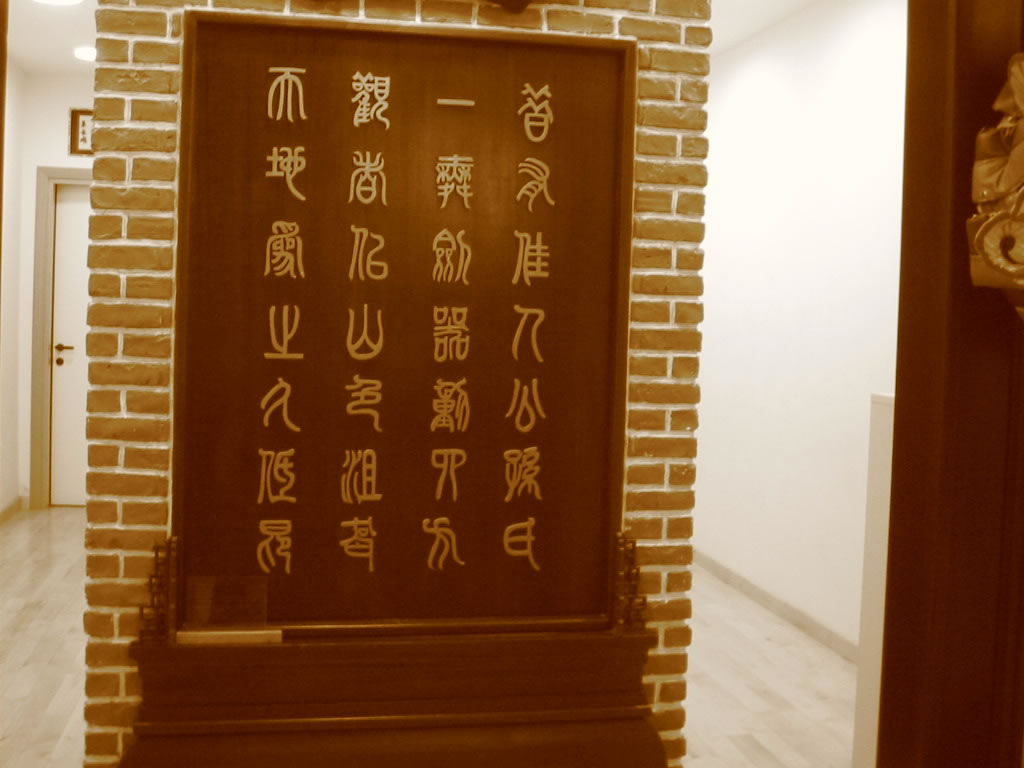 昔有佳人公孫氏
一舞劍器動四方
觀者如山色沮喪
天地為之久低昂